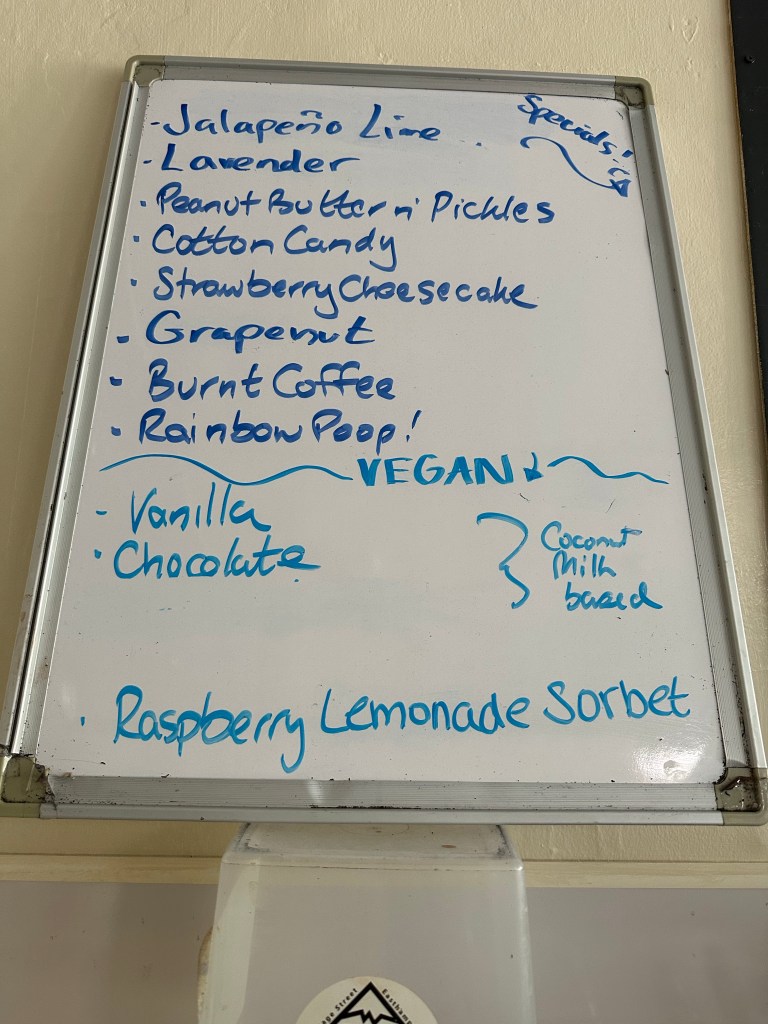 Specials!
- Jalapeño Lime
- Lavender
· Peanut Butter n' Pickles
· Cotton Candy
· Strawberry Cheesecake
- Grapenut
- Burnt Coffee
· Rainbow Poop!
VEGAN
- Vanilla
· Chocolate
Coconut
Milk
based
· Raspberry Lemonade Sorbet
Street